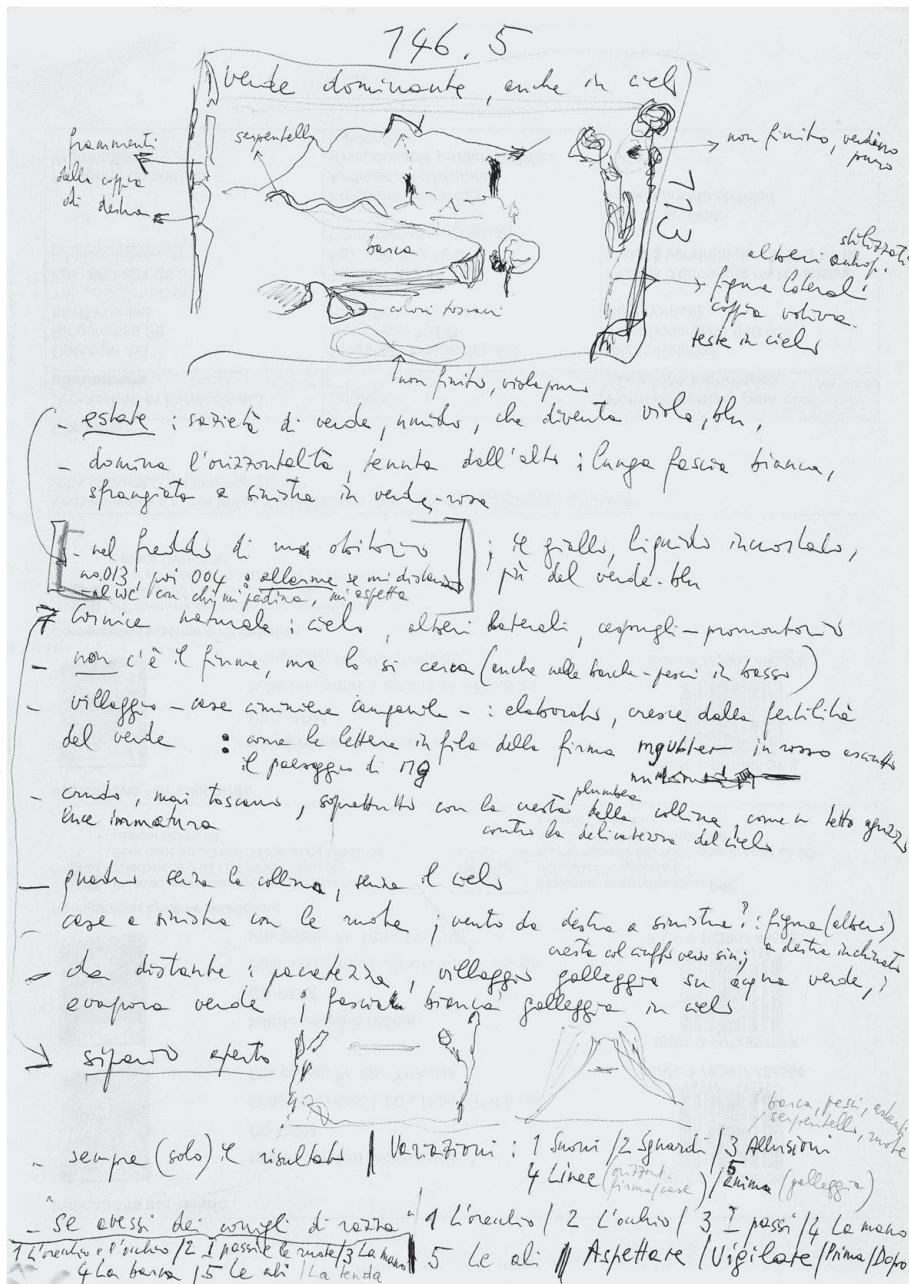 146.5
verde dominante, anche in cielo
frammenti
della coppia
di destra
serpentello
non finito, verdino
puro
73
barca
alberi antrop. stilizzati
figure laterali
coppia votiva
teste in cielo
colori toscani
non finito, viola puro
- estate : sazietà di verde, umido, che diventa viola, blu,
- domina l'orizzontalità, tenuta dall'alto : lunga fascia bianca,
sfrangiata a sinistra in verde-rosa
- nel freddo di un obitorio
no. 013, poi 004 : allarme se mi distanzio
- al WC con chi mi pedina, mi aspetta
; il giallo, liquido incrostato,
più del verde-blu
Cornice naturale : cielo, alberi laterali, cespugli - promontorio
- non c'è il fiume, ma lo si cerca (anche nelle barche-pesci in basso)
- villaggio - case ciminiere campanile - : elaborato, cresce dalla fertilità
del verde : come le lettere in fila della firma mgunter in rosso asciutto
il paesaggio di MG
- crudo, mai toscano, soprattutto con la cresta plumbea della collina, come un tetto aguzzo
luce immatura contro la delicatezza del cielo
- quadro senza la collina, senza il cielo
- case a sinistra con le ruote ; vento da destra a sinistra? : figura (albero)
cresta col ciuffo verso sin.; a destra inclinata
- da distante : pacatezza, villaggio galleggia su acqua verde,
evapora verde ; fascia bianca galleggia in cielo
sipario aperto
barca, pesci,
serpentello, ruote
- sempre (solo) il risultato | Variazioni : 1 Suoni / 2 Sguardi / 3 Allusioni
4 Linee (orizzont. firma/case) / 5 Anima (galleggia)
- "Se avessi dei conigli di razza" 1 L'orecchio / 2 L'occhio / 3 I passi / 4 La mano
1 L'orecchio e l'occhio / 2 I passi e le ruote / 3 La mano | 5 Le ali || Aspettare / Vigilare / Prima / Dopo
4 La barca / 5 Le ali / La tenda